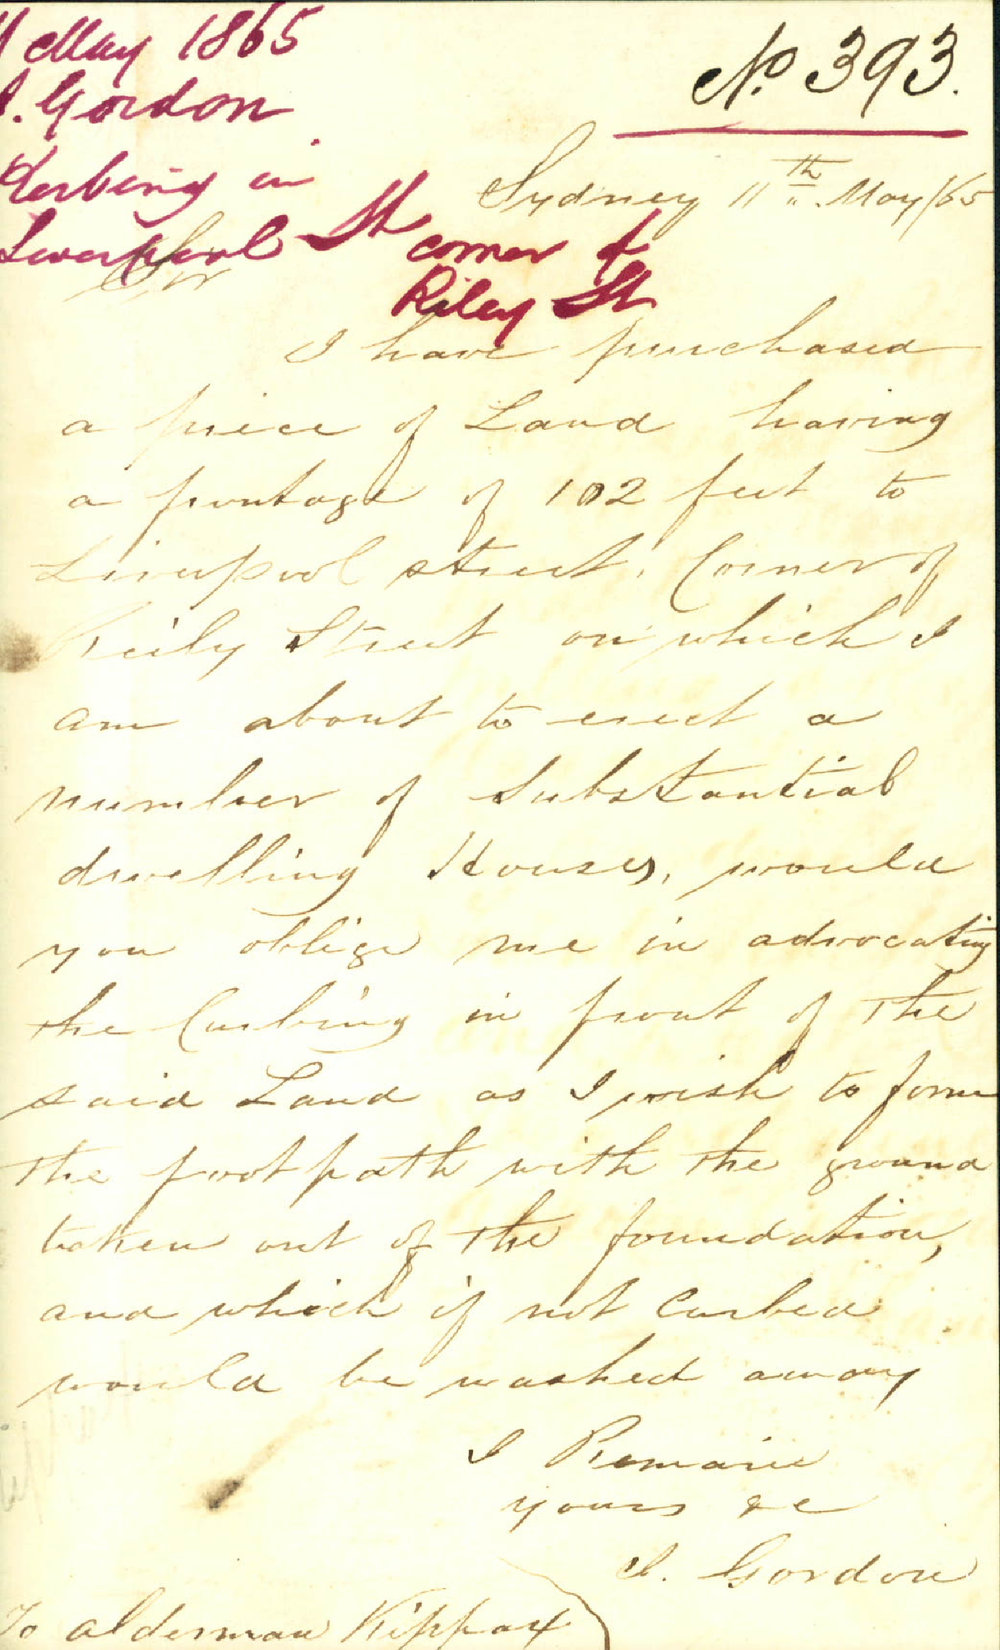 May 1865
J. Gordon
Kerbing in
Liverpool St corner of
Riley St
No. 393.
Sydney 11th May/65
Sir
I have purchased
a piece of Land having
a frontage of 102 feet to
Liverpool street, Corner of
Reily Street on which I
am about to erect a
number of Substantial
dwelling Houses, would
you oblige me in advocating
the Curbing in front of the
said Land as I wish to form
the footpath with the ground
taken out of the foundation,
and which if not Curbed
would be washed away
I Remain
yours &c
J. Gordon
To alderman Kippax